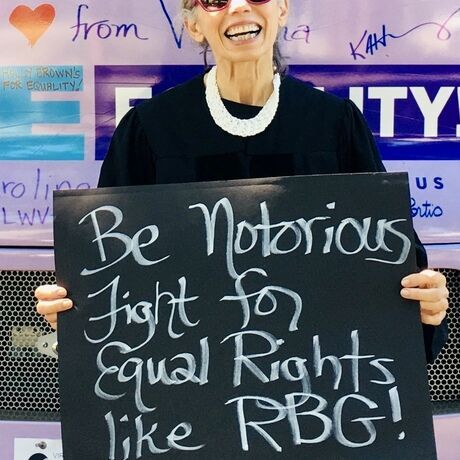 from
Kath
BROWN'S
FOR EQUALITY!
EQUALITY!
LWV
US
Be Notorious
Fight for
Equal Rights
like RBG!